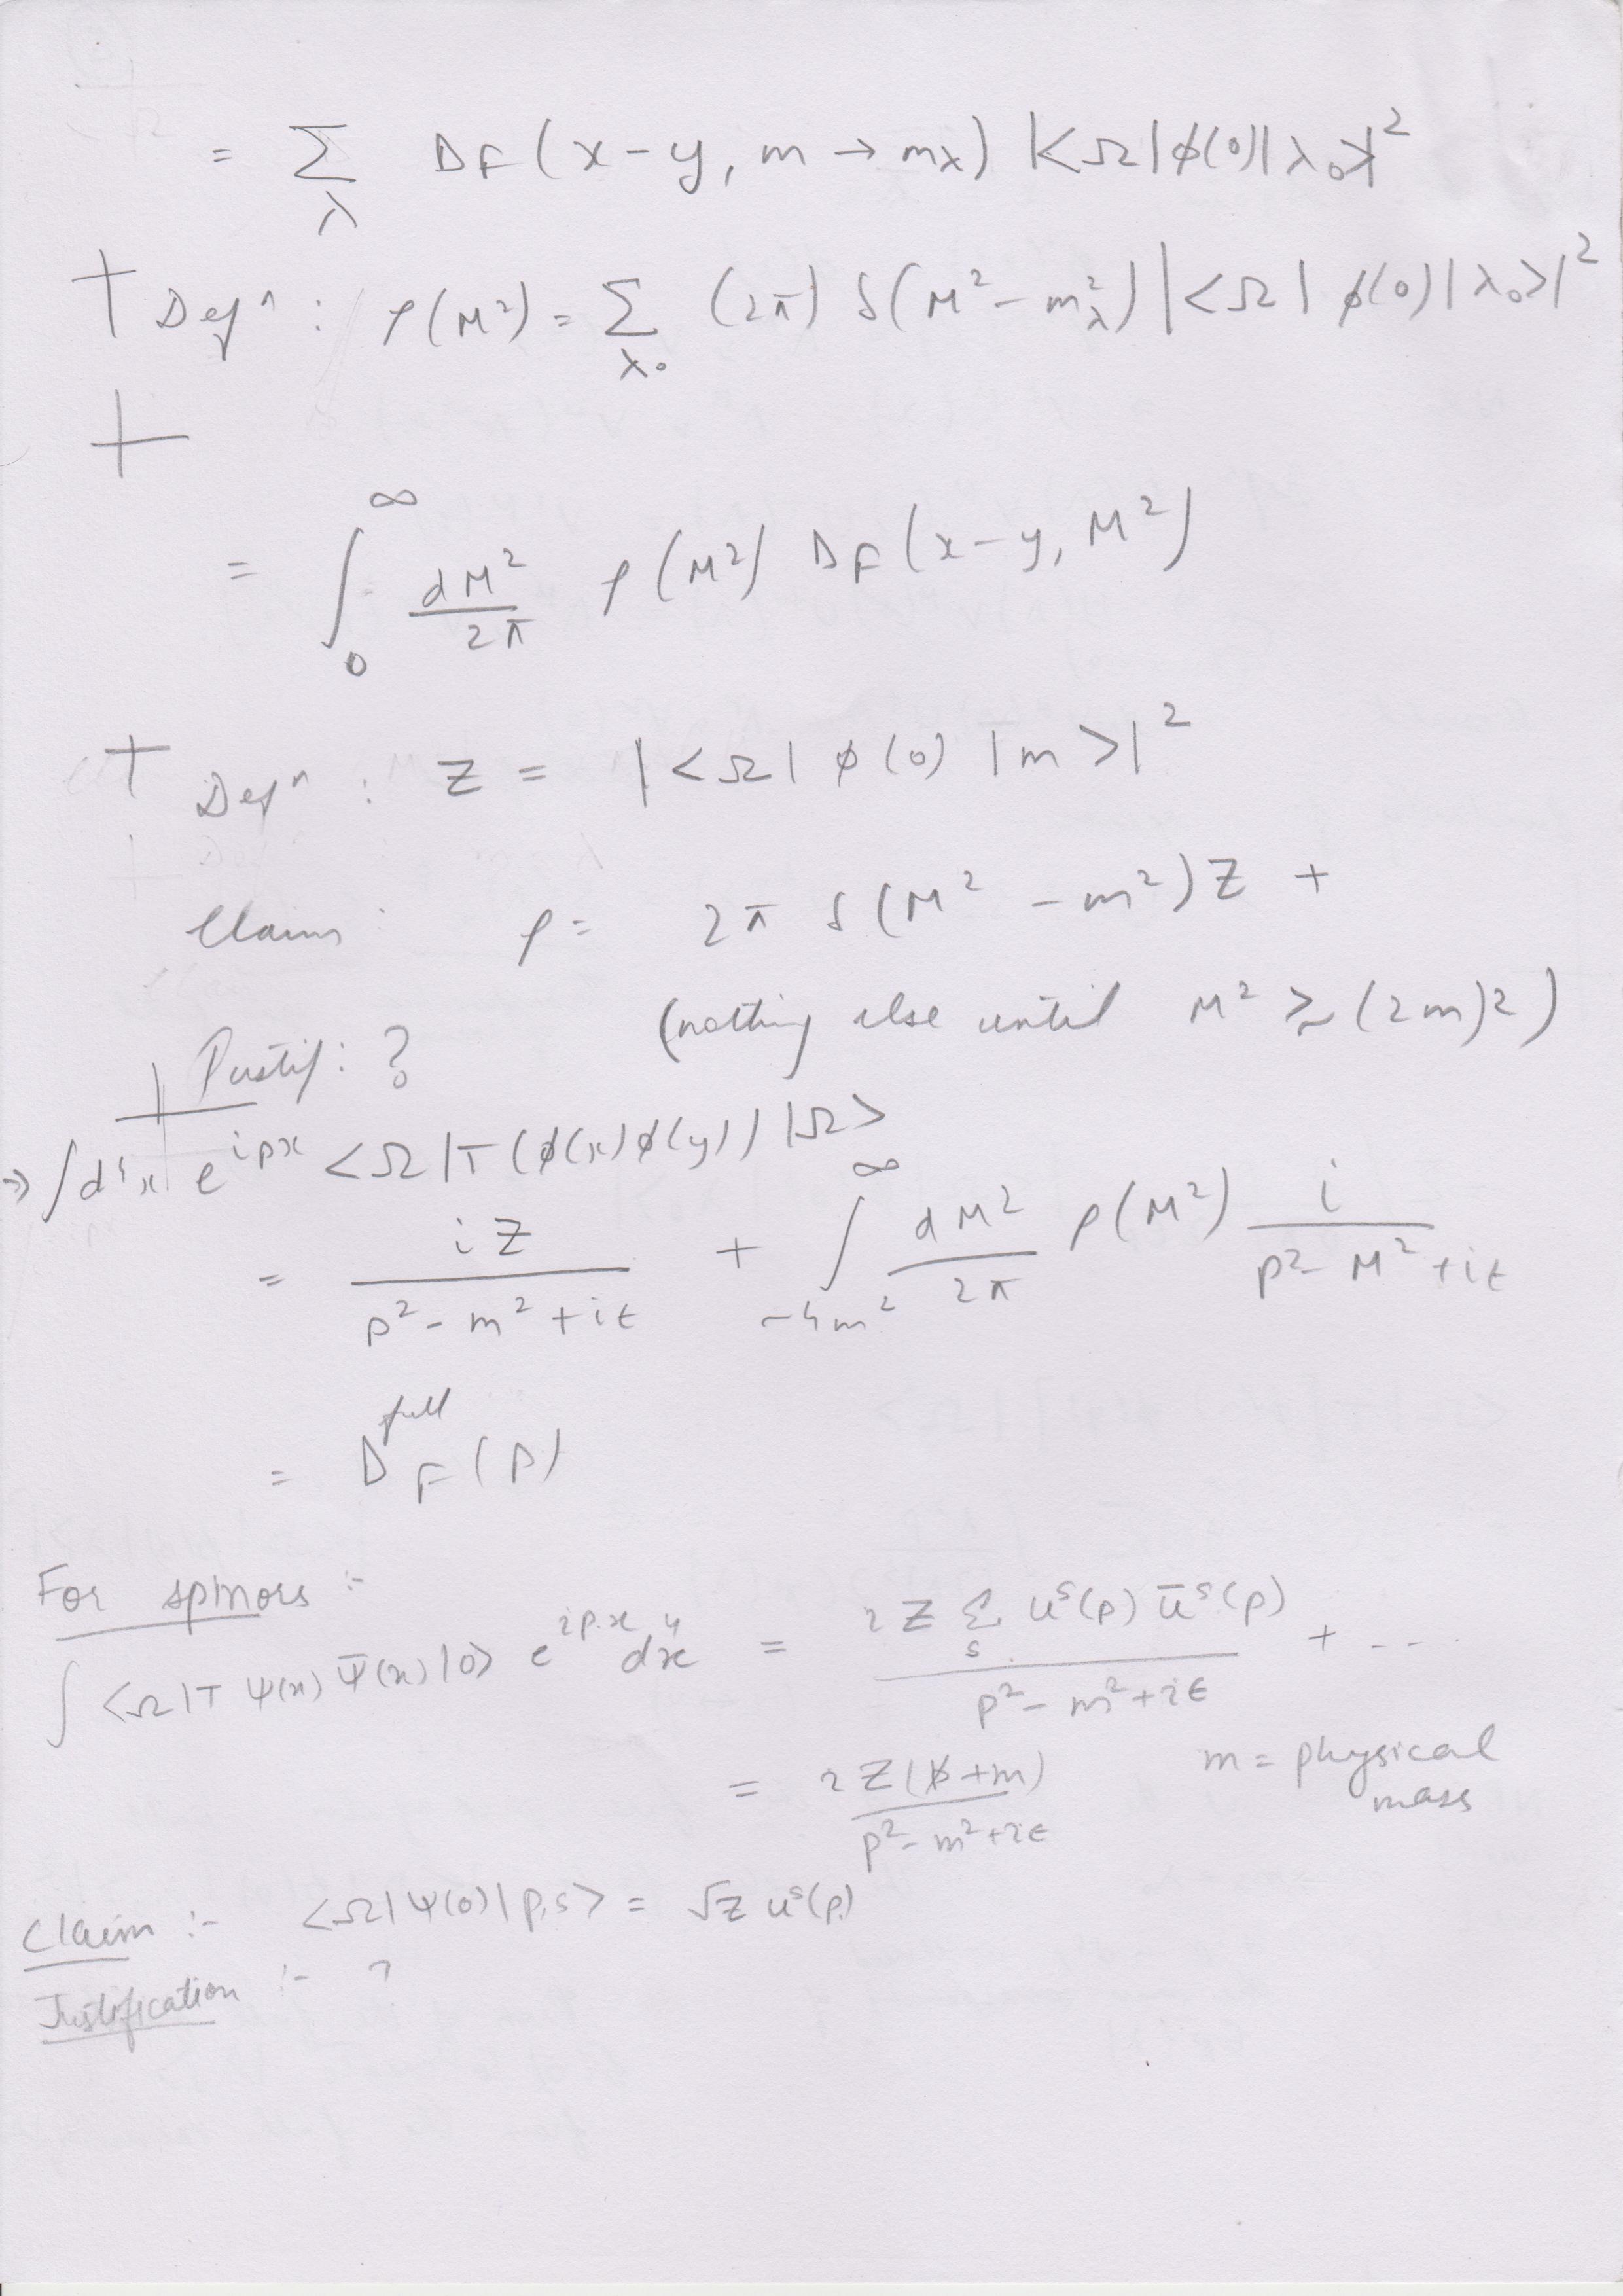 = Σ_λ D_F(x-y, m → m_λ) |<Ω|φ(0)|λ_0>|^2
Def^n : ρ(M^2) = Σ_{λ_0} (2π) δ(M^2 - m_λ^2) |<Ω|φ(0)|λ_0>|^2
= ∫_0^∞ dM^2/2π ρ(M^2) D_F(x-y, M^2)
Def^n : Z = |<Ω|φ(0)|m>|^2
Claim : ρ = 2π δ(M^2 - m^2) Z +
(nothing else until M^2 ≳ (2m)^2)
Justif: ?
⇒ ∫d^4x e^{ipx} <Ω|T(φ(x)φ(y))|Ω>
= iZ/(p^2 - m^2 + iε) + ∫_{~4m^2}^∞ dM^2/2π ρ(M^2) i/(p^2 - M^2 + iε)
= D_F^{full}(p)
For spinors :-
∫ <Ω|T Ψ(x) Ψ̄(x)|0> e^{ip.x} d^4x = i Z Σ_s u^s(p) ū^s(p)/(p^2 - m^2 + iε) + ....
= i Z(p̸ + m)/(p^2 - m^2 + iε) m = physical mass
Claim :- <Ω|Ψ(0)|p,s> = √Z u^s(p)
Justification :- ?